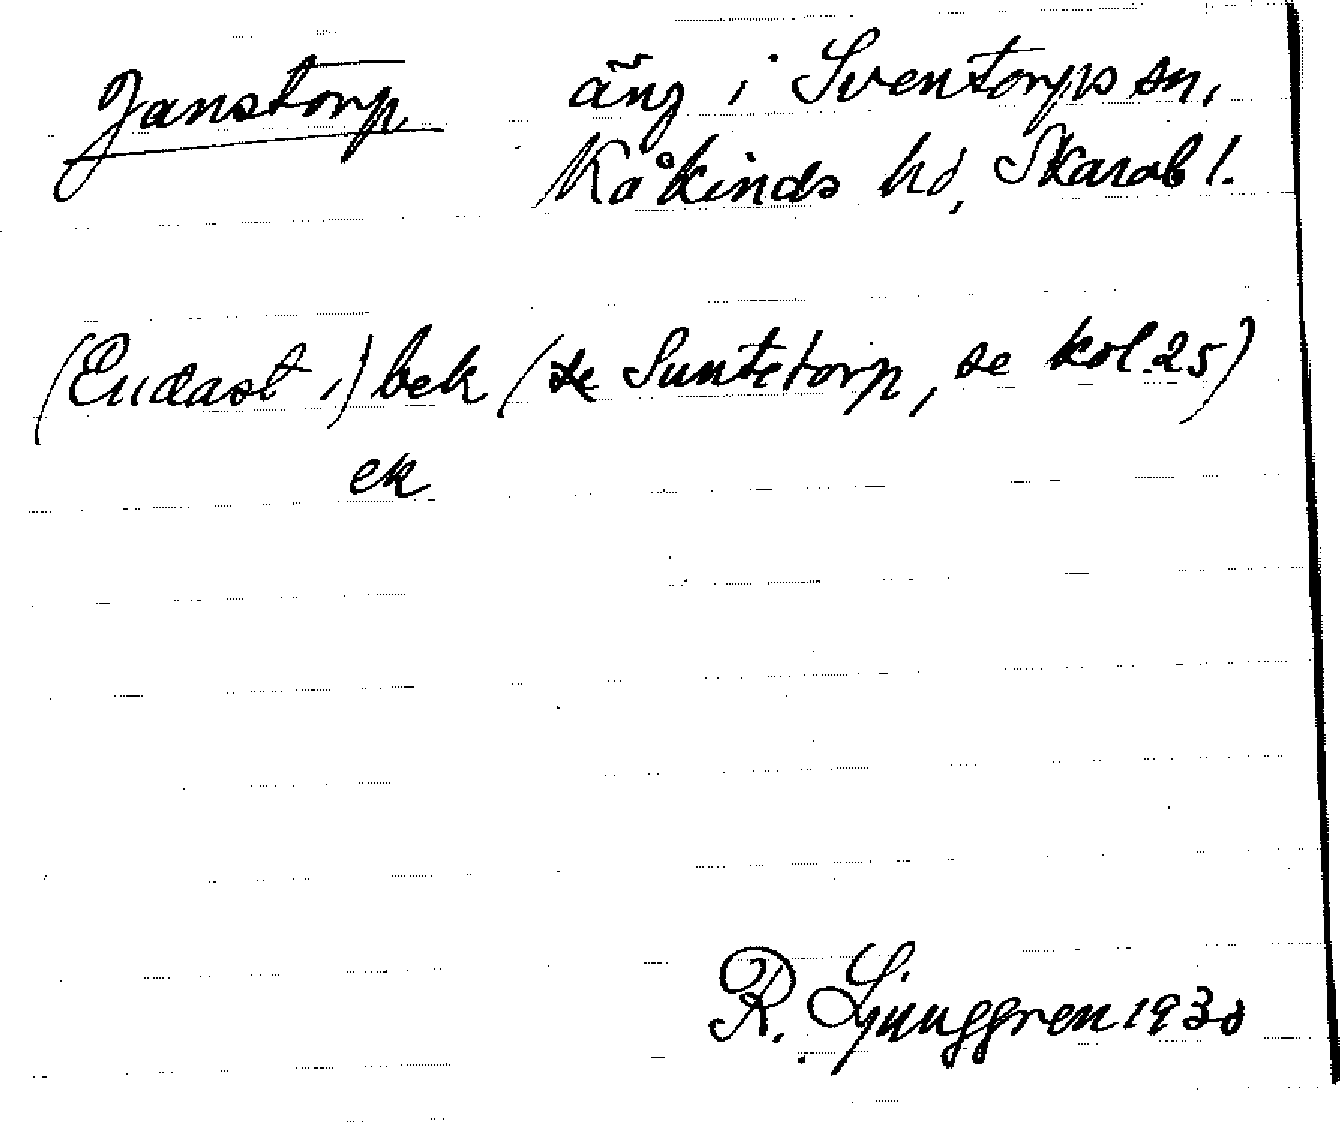 Janstorp äng i Sventorps sn,
Kåkinds hd, Skarab l.
(Endast i) bek (se Suntetorp, se kol. 25)
ek
R. Ljunggren 1930